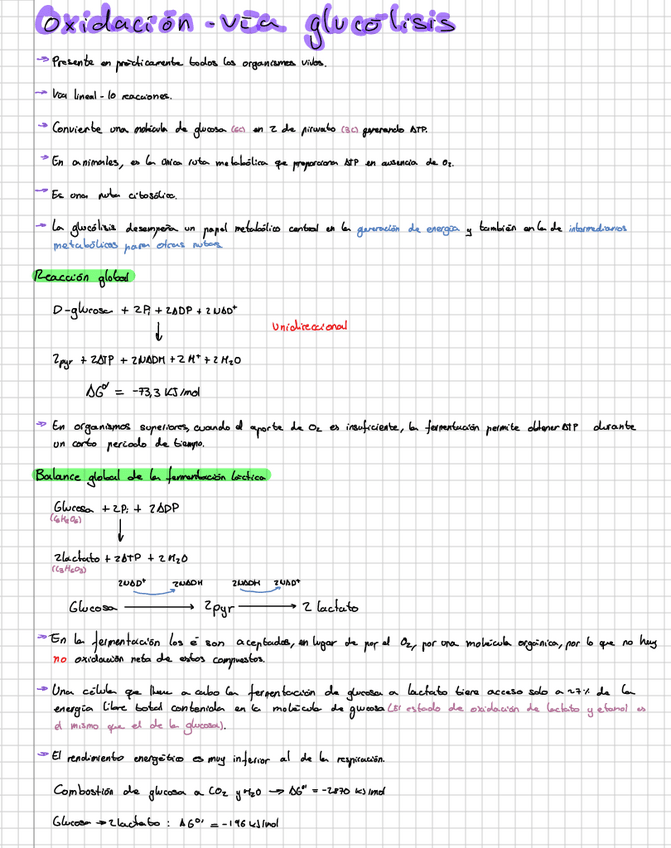 Oxidación - vía glucólisis
→ Presente en prácticamente todos los organismos vivos.
→ Vía lineal - 10 reacciones.
→ Convierte una molécula de glucosa (6C) en 2 de piruvato (3C) generando ATP.
→ En animales, es la única ruta metabólica que proporciona ATP en ausencia de O₂.
→ Es una ruta citosólica.
→ La glucólisis desempeña un papel metabólico central en la generación de energía y también en la de intermediarios
metabólicos para otras rutas
Reacción global
D-glucosa + 2Pi + 2ADP + 2NAD⁺
↓
Unidireccional
2pyr + 2ATP + 2NADH + 2H⁺ + 2H₂O
ΔG°' = -73,3 KJ/mol
→ En organismos superiores, cuando el aporte de O₂ es insuficiente, la fermentación permite obtener ATP durante
un corto periodo de tiempo.
Balance global de la fermentación láctica
Glucosa + 2Pi + 2ADP
(C₆H₁₂O₆)
↓
2lactato + 2ATP + 2H₂O
(C₃H₆O₃)
2NAD⁺ 2NADH 2NADH 2NAD⁺
Glucosa → 2pyr → 2 lactato
→ En la fermentación los e⁻ son aceptados, en lugar de por el O₂, por una molécula orgánica, por lo que no hay
no oxidación neta de estos compuestos.
→ Una célula que lleve a cabo la fermentación de glucosa a lactato tiene acceso solo a ~7% de la
energía libre total contenida en la molécula de glucosa (El estado de oxidación de lactato y etanol es
el mismo que el de la glucosa).
→ El rendimiento energético es muy inferior al de la respiración.
Combustión de glucosa a CO₂ y H₂O → ΔG°' = -2870 KJ/mol
Glucosa → 2lactato : ΔG°' = -196 KJ/mol